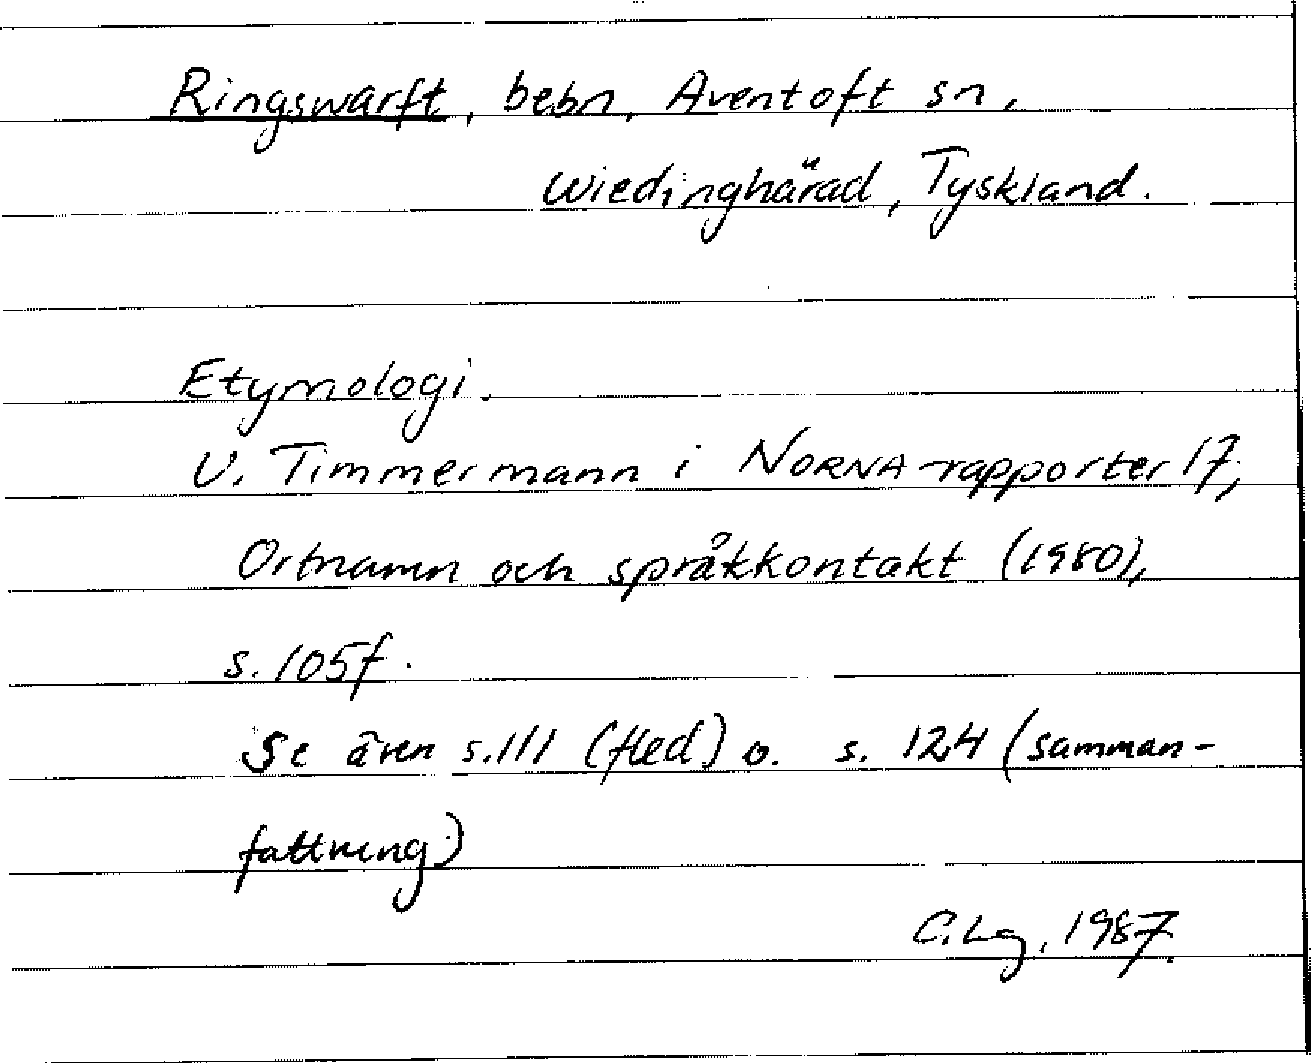 Ringswarft, bebn, Aventoft sn,
Wiedinghärad, Tyskland.
Etymologi.
U. Timmermann i NORNA-rapporter 17,
Ortnamn och språkkontakt (1980),
s. 105f.
Se även s. 111 (fled) o. s. 124 (samman-
fattning)
C. Lg, 1987.